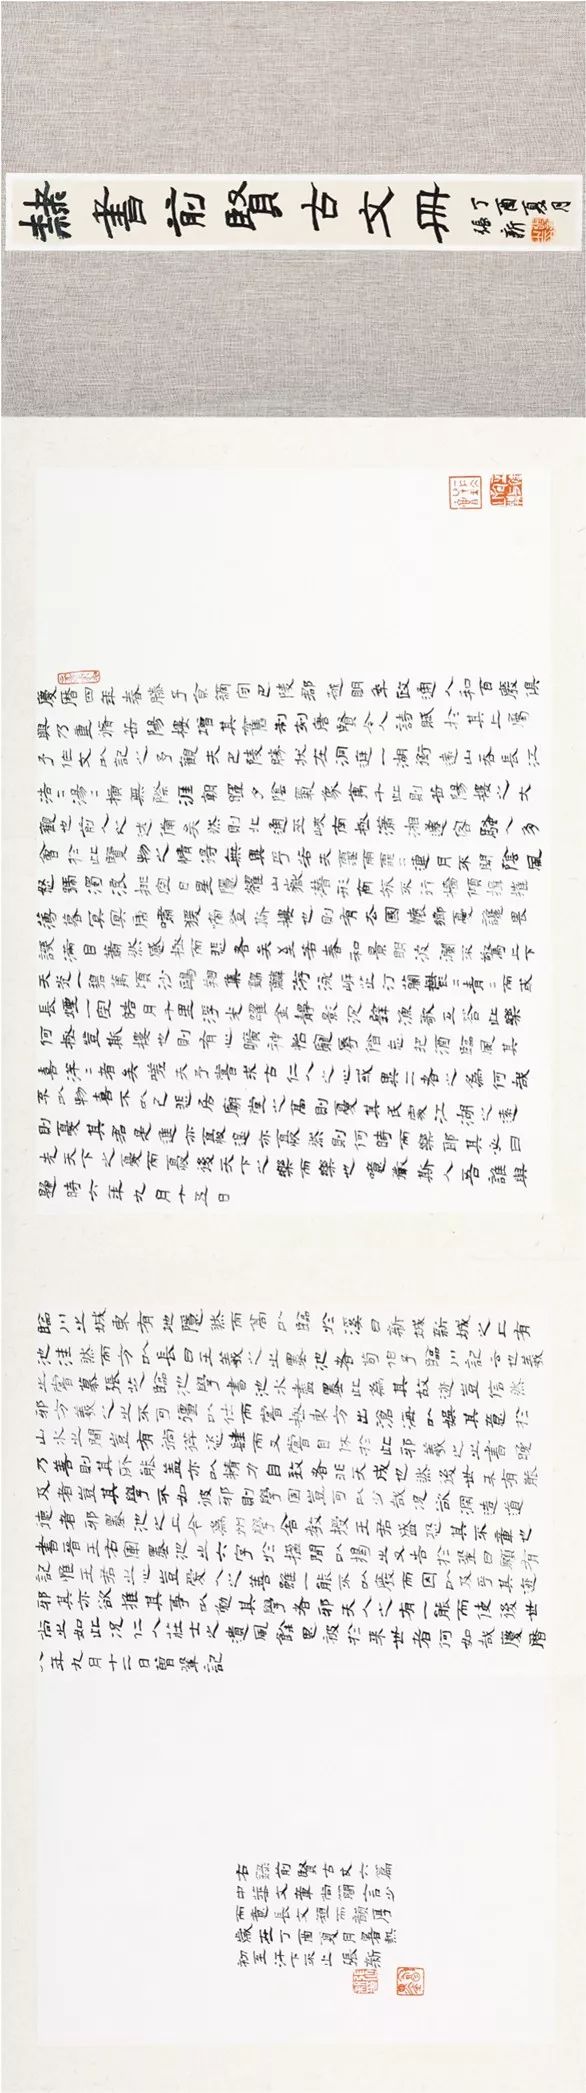 隸書前賢古文冊
丁酉夏月
張新
慶曆四年春滕子京謫守巴陵郡越明年政通人和百廢俱
興乃重脩岳陽樓增其舊制刻唐賢今人詩賦於其上屬
予作文以記之予觀夫巴陵勝狀在洞庭一湖銜遠山吞長江
浩〻湯〻橫無際涯朝暉夕陰氣象萬千此則岳陽樓之大
觀也前人之述備矣然則北通巫峽南極瀟湘遷客騷人多
會於此覽物之情得無異乎若夫霪雨霏〻連月不開陰風
怒號濁浪排空日星隱耀山嶽潛形商旅不行檣傾楫摧
薄暮冥冥虎嘯猨啼登斯樓也則有去國懷鄉憂讒畏
譏滿目蕭然感極而悲者矣至若春和景明波瀾不驚上下
天光一碧萬頃沙鷗翔集錦鱗游泳岸芷汀蘭鬱〻青〻而或
長煙一空皓月千里浮光耀金靜影沉璧漁歌互答此樂
何極登斯樓也則有心曠神怡寵辱偕忘把酒臨風其
喜洋〻者矣嗟夫予嘗求古仁人之心或異二者之為何哉
不以物喜不以己悲居廟堂之高則憂其民處江湖之遠
則憂其君是進亦憂退亦憂然則何時而樂耶其必曰
先天下之憂而憂後天下之樂而樂也噫微斯人吾誰與
歸時六年九月十五日
臨川之城東有地隱然而高以臨於溪曰新城新城之上有
池洼然而方以長曰王羲之之墨池者荀伯子臨川記云也羲
之嘗慕張芝臨池學書池水盡黑此為其故迹豈信然
邪方羲之之不可彊以仕而嘗極東方出滄海以娛其意於
山水之間豈有徜徉恣肆而又嘗自休於此邪羲之之書晚
乃善則其所能蓋亦以精力自致者非天成也然後世未有能
及者豈其學不如彼邪則學固豈可以少哉況欲深造道
德者邪墨池之上今為州學舍教授王君盛恐其不章也
書晉王右軍墨池之六字於楹間以揭之又告於鞏曰願有
記惟王君之心豈愛人之善雖一能不以廢而因以及乎其迹
邪其亦欲推其事以勉其學者邪夫人之有一能而使後世
尚之如此況仁人莊士之遺風餘思被於來世者何如哉慶曆
八年九月十二日曾鞏記
右錄前賢古文六篇
中華文章尚簡言少
而意長文短而韻厚
歲在丁酉夏月暑熱
初至汗下不止張新